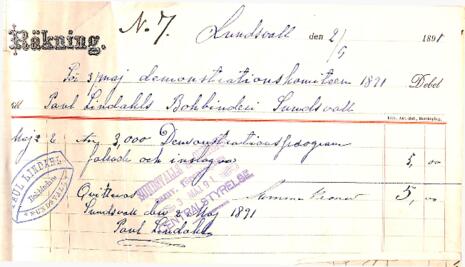 N. 7.
Räkning. Sundsvall den 2/5 1891
För 3 maj demonstrationskomiteen 1891 Debet
till Paul Lindahls Bokbinderi Sundsvall
Maj 2 3,000 Demonstrationsprogram
falsade och inslagna 5,00
Qvitteras Summa Kronor 5,00
Sundsvall den 2 Maj 1891
Paul Lindahl
PAUL LINDAHL
Bokbinderi
SUNDSVALL
SUNDSVALLS
3 MAJ 91
CENTRALSTYRELSE